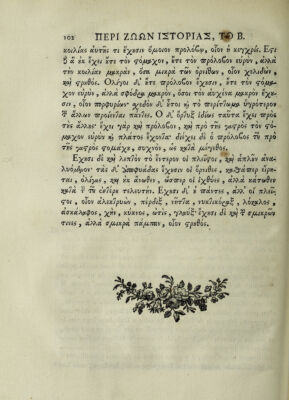 102 ΠΕΡΙ ΖΩΩΝ ΙΣΤΟΡΙΑΣ, ΤΟ Β.
κοιλίας αὐτῆς τι ἔχουσι ὅμοιον προλόβῳ, οἷον ἡ κεγχρίς. Ἔστι
δ' ἃ ἐκ ἔχει ἔτε τὸν στόμαχον, ἔτε τὸν πρόλοβον εὐρὺν, ἀλλὰ
τὴν κοιλίαν μακρὰν, ὅσα μικρὰ τῶν ὀρνίθων, οἷον χελιδὼν,
καὶ στρουθός. Ὀλίγοι δ' ἔτε τὸν πρόλοβον ἔχουσιν, ἔτε τὸν στό-
μαχον εὐρὺν, ἀλλὰ σφόδρα μακρὸν, ὅσοι τὸν αὐχένα μακρὸν ἔχου-
σιν, οἷον πορφυρίων· σχεδὸν δ' ὗτοι καὶ τὸ περίττωμα ὑγρότερον
τῶν ἄλλων προΐενται πάντες. Ὁ δ' ὄρτυξ ἰδίως ταῦτα ἔχει πρὸς
τὰς ἄλλας· ἔχει γὰρ καὶ πρόλοβον, καὶ πρὸ τῆς γαστρὸς τὸν στό-
μαχον εὐρὺν καὶ πλάτος ἔχοντα· διέχει δὲ ὁ πρόλοβος τοῦ πρὸ
τῆς γαστρὸς στομάχου, συχνὸν, ὡς κατὰ μέγεθος.
Ἔχουσι δὲ καὶ λεπτὸν τὸ ἔντερον οἱ πλεῖστοι, καὶ ἁπλοῦν ἀνα-
λυόμενον· τὰς δ' ἀποφυάδας ἔχουσιν οἱ ὄρνιθες, καθάπερ εἴρη-
ται, ὀλίγας, καὶ ἐκ ἄνωθεν, ὥσπερ οἱ ἰχθύες, ἀλλὰ κάτωθεν
κατὰ τὴν τοῦ ἐντέρου τελευτήν. Ἔχουσι δ' ἐ πάντες, ἀλλ' οἱ πλεῖ-
στοι, οἷον ἀλεκτρυὼν, πέρδιξ, νῆττα, νυκτικόραξ, λόκαλος,
ἀσκάλαφος, χὴν, κύκνος, ὠτὶς, γλαύξ· ἔχουσι δὲ καὶ τῶν σμικρῶν
τινες, ἀλλὰ σμικρὰ πάμπαν, οἷον στρουθός.